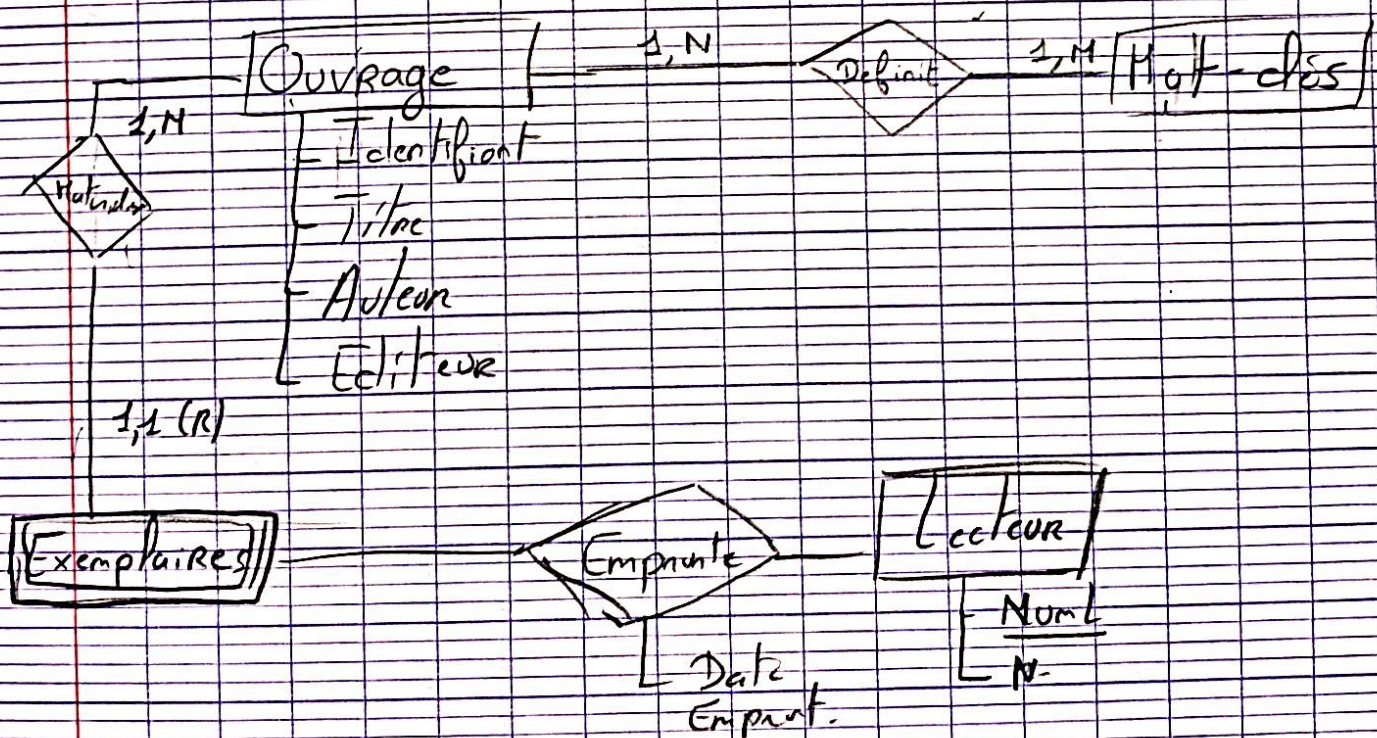 Ouvrage
1,N
Definit
1,M
Mot-clés
1,M
Identifiant
Titre
Auteur
Editeur
1,1 (R)
Exemplaires
Emprunte
Lecteur
NumL
N-
Date
Emprunt.